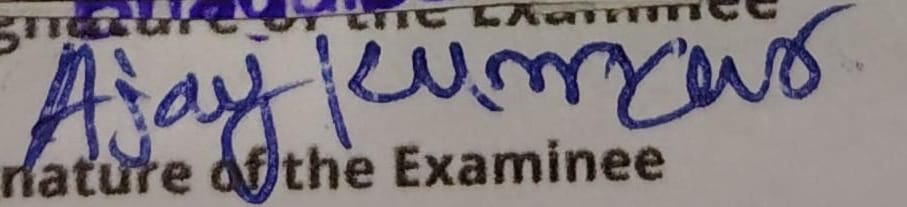 gnature of the Examinee
Ajay Kumar
nature of the Examinee